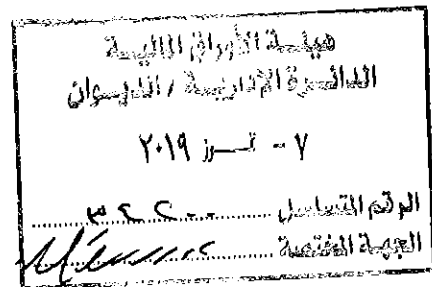 هيئة الأوراق المالية
الدائرة الإدارية / الديوان
٧ - تموز ٢٠١٩
الرقم المتسلسل
الجهة المختصة